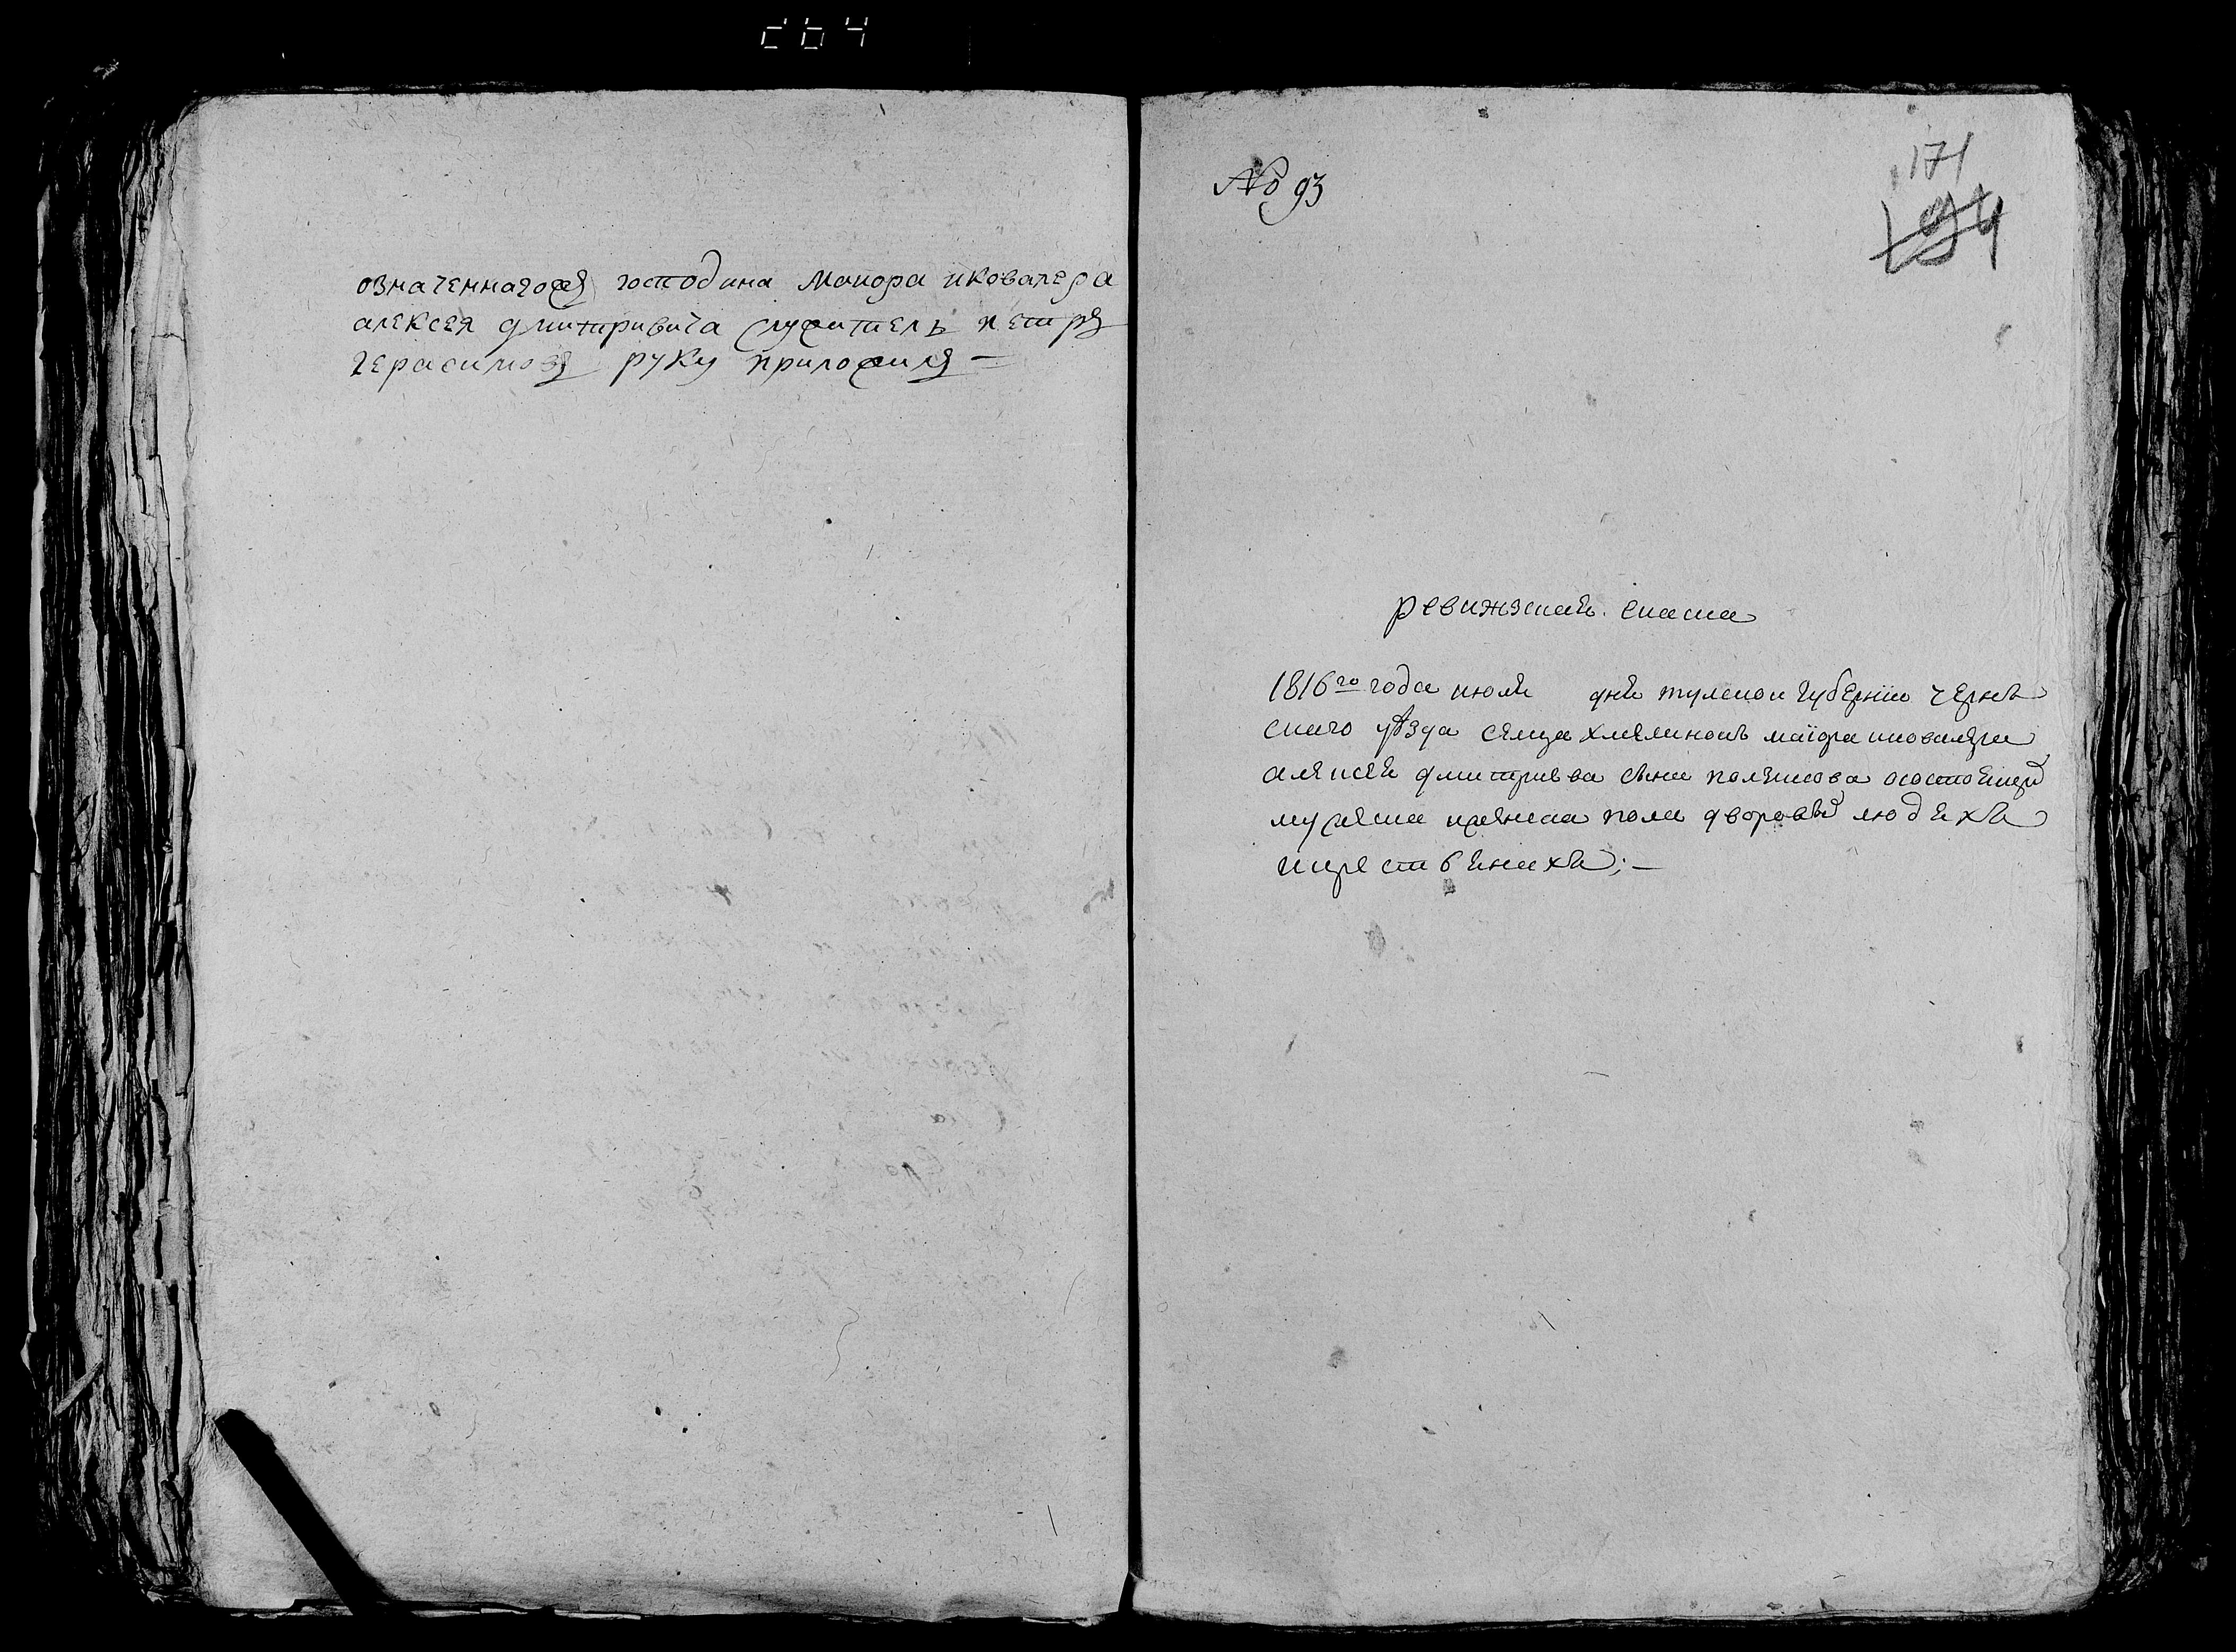 264
означеннагожъ господина маиора иковалера
алексея дмитривича служитель петръ
герасимовъ руку приложилъ —
№ 93
171
194
ревижзкая скаска
1816го года июля дня тулской губернїи чернь
скаго уѣзда селца хмелиновъ маїора иковалера
алексея дмитрива сына осостоящи
мужеска иженска пола дворовы людехъ
икрестьянихъ; —